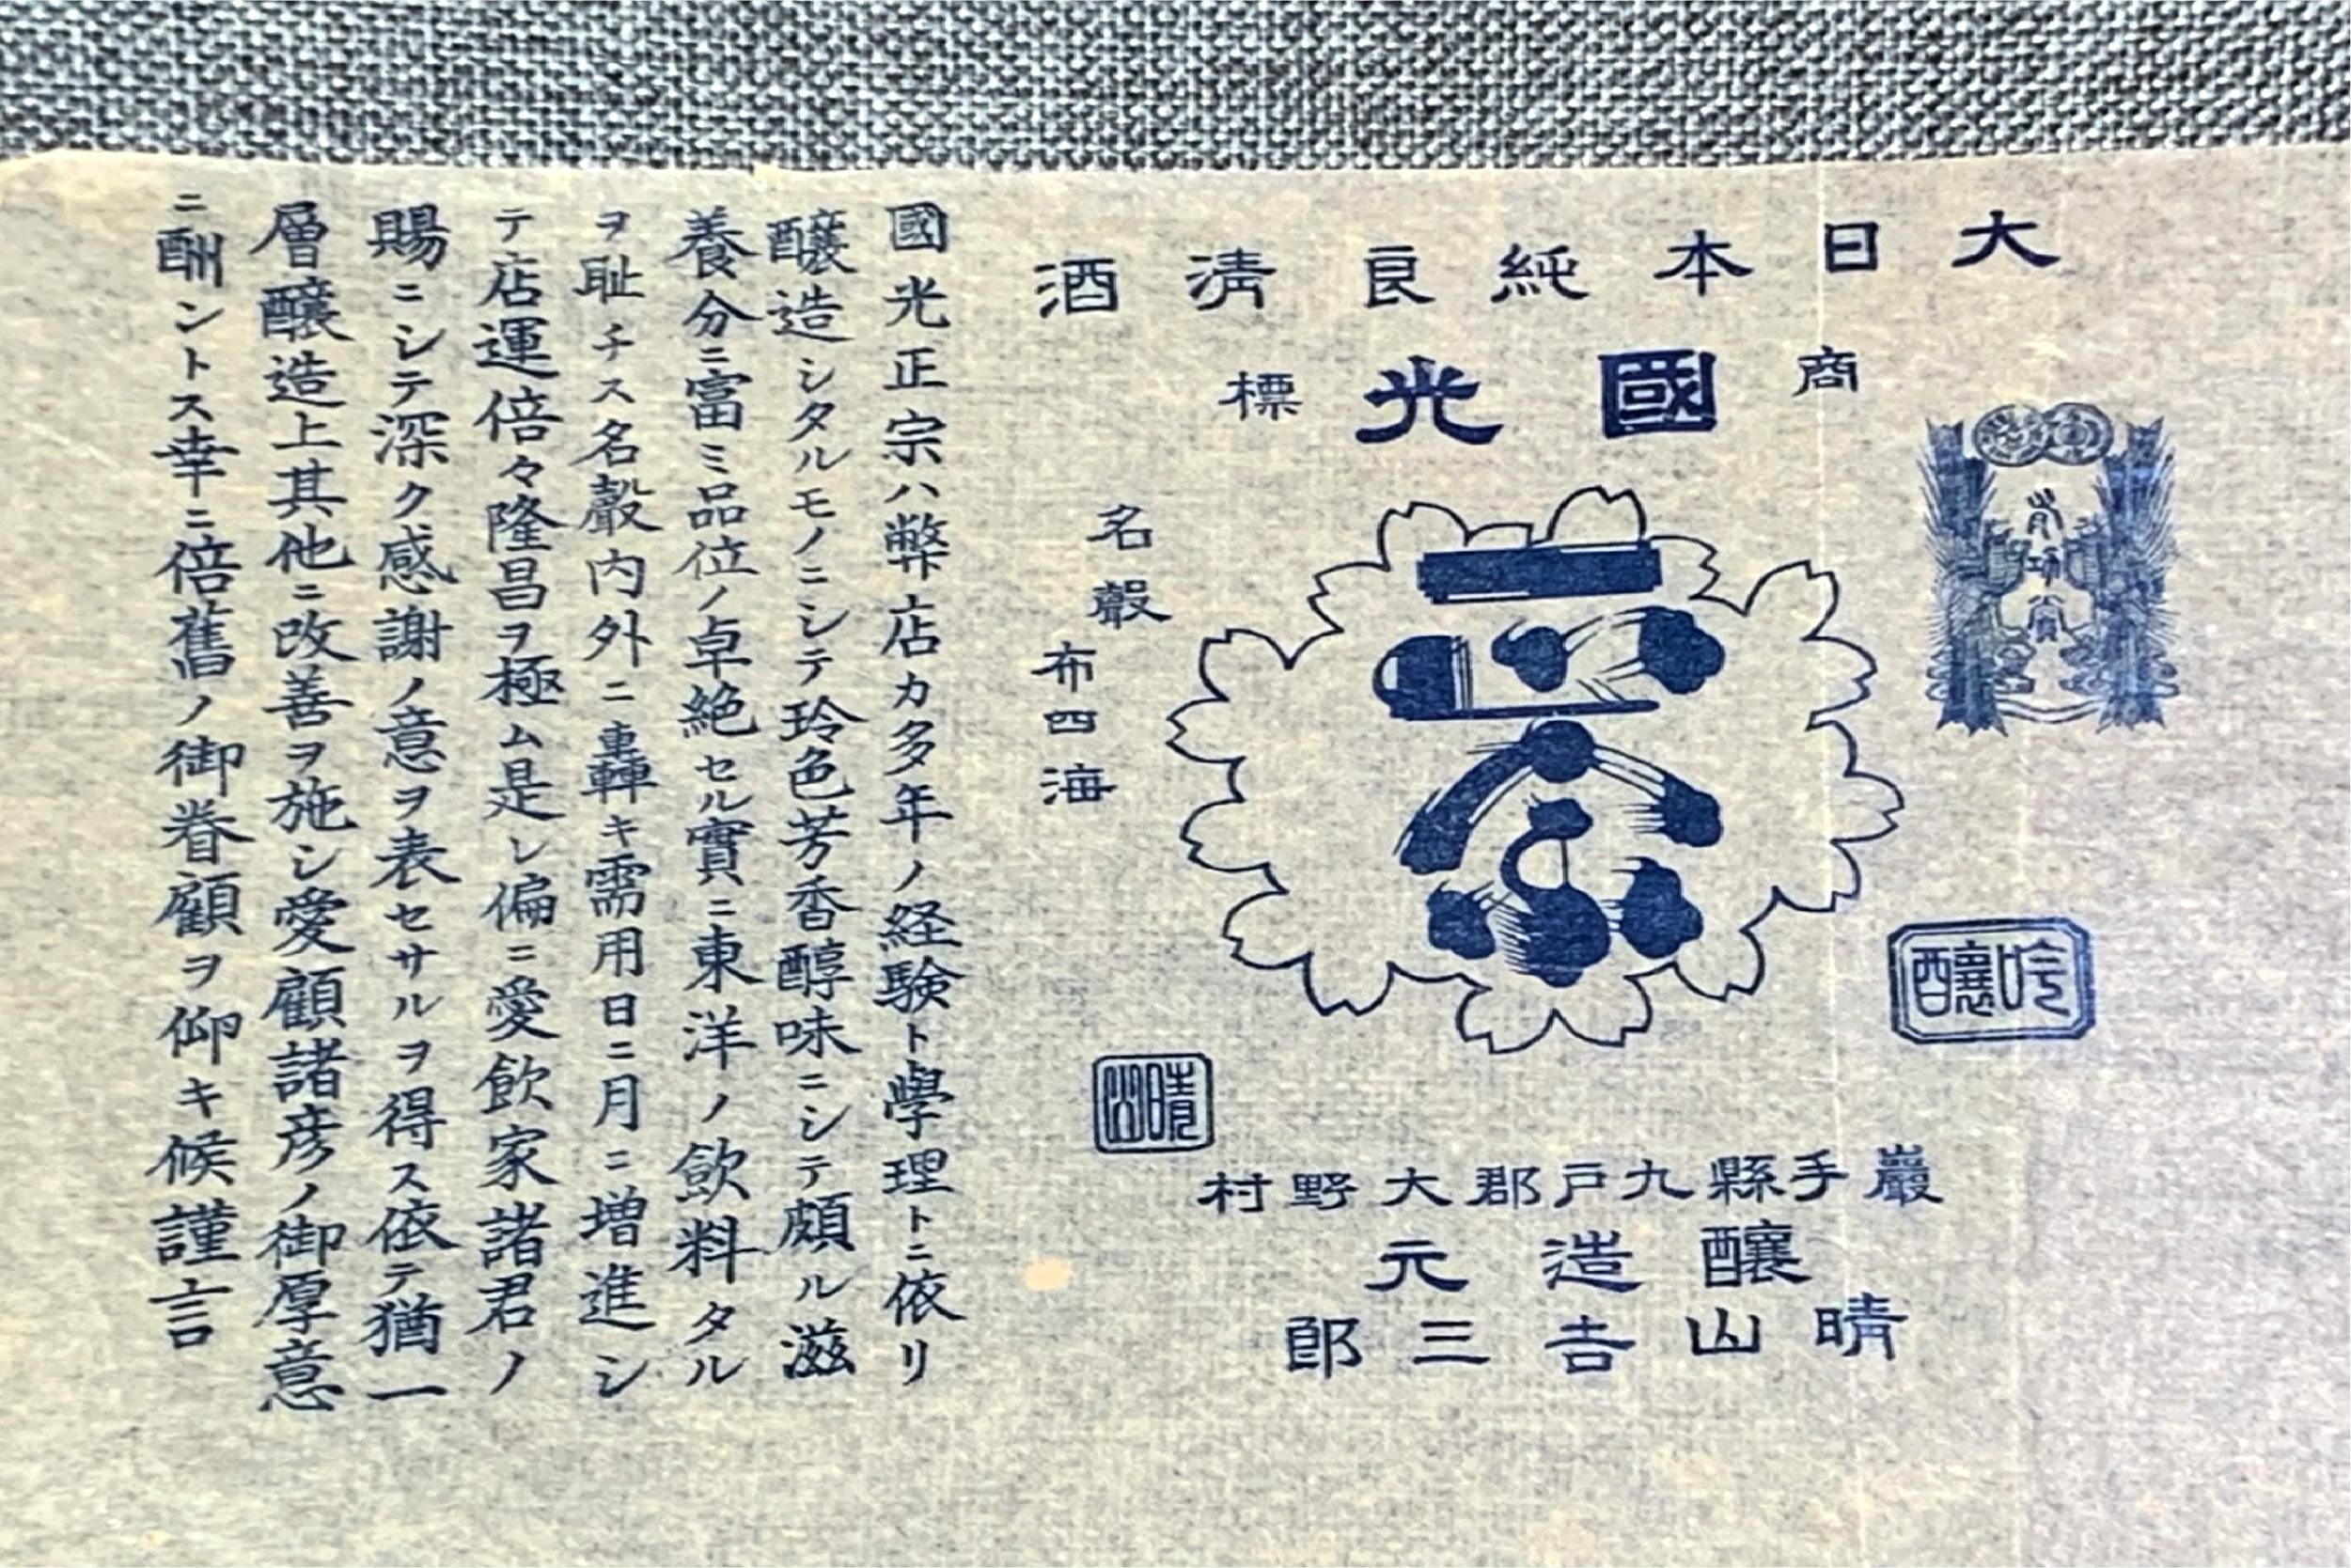 大日本純良淸酒
商
國光
標
正宗
名聲
布四海
有功賞
吟釀
晴山
巖手縣九戸郡大野村
釀造元
晴山吉三郎
國光正宗ハ弊店カ多年ノ経験ト學理トニ依リ
釀造シタルモノニシテ玲色芳香醇味ニシテ頗ル滋
養分ニ富ミ品位ノ卓絶セル實ニ東洋ノ飲料タル
ヲ耻チス名聲内外ニ轟キ需用日ニ月ニ増進シ
テ店運倍々隆昌ヲ極ム是レ偏ニ愛飲家諸君ノ
賜ニシテ深ク感謝ノ意ヲ表セサルヲ得ス依テ猶一
層釀造上其他ニ改善ヲ施シ愛顧諸彦ノ御厚意
ニ酬ントス幸ニ倍舊ノ御眷顧ヲ仰キ候謹言